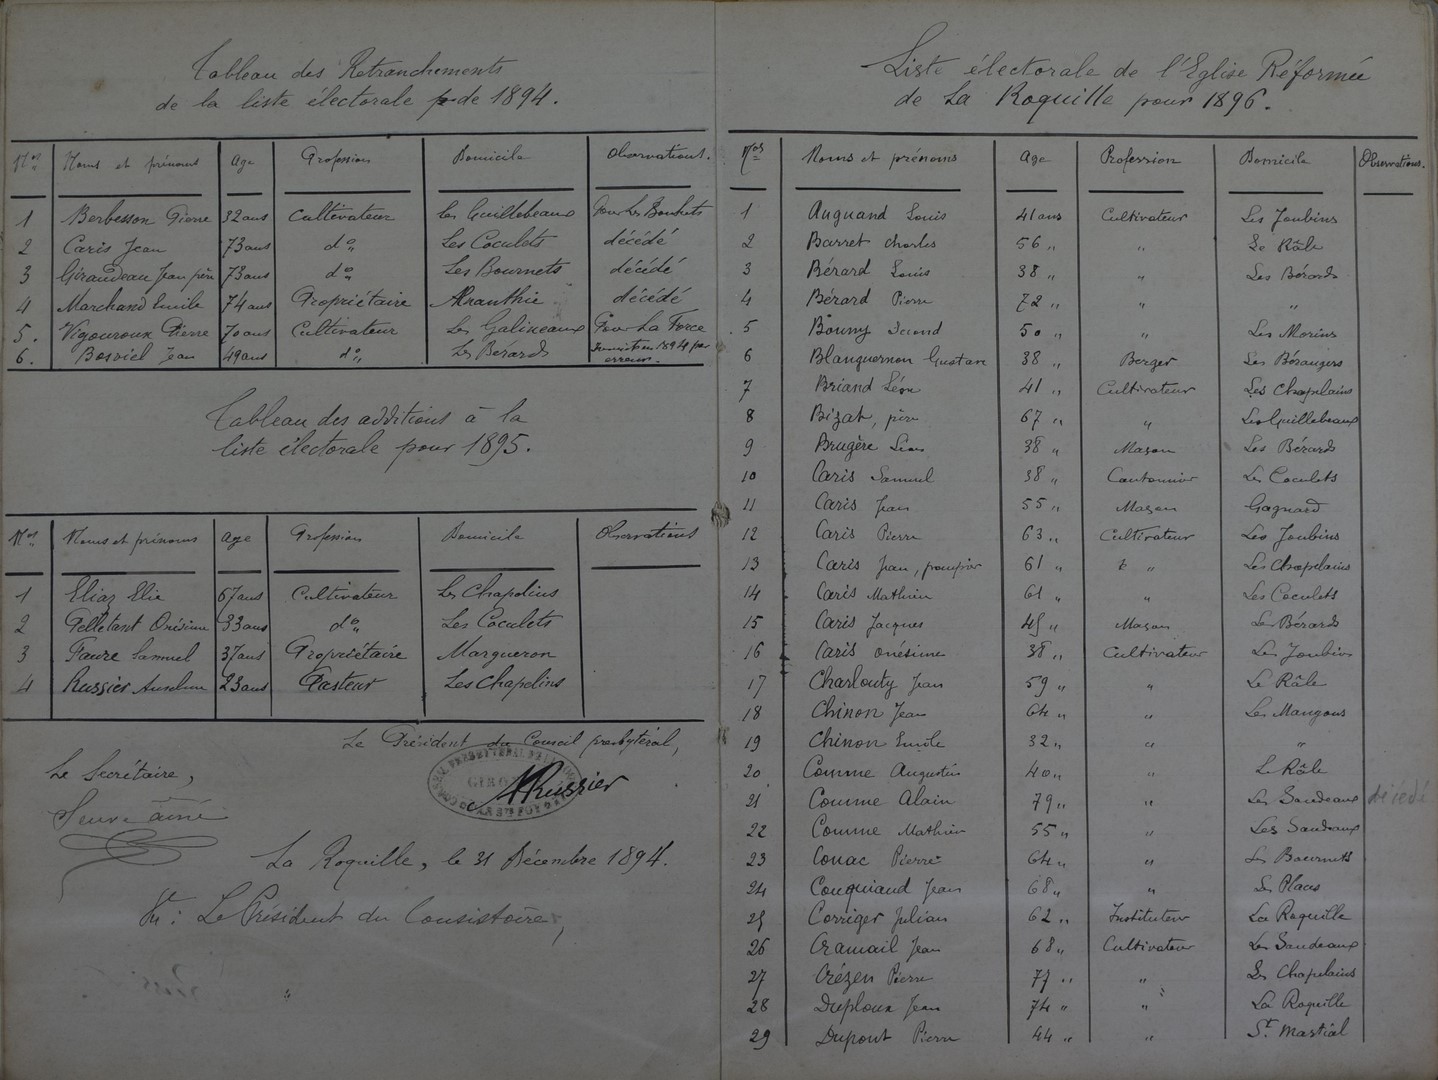 Tableau des Retranchements
de la liste électorale p de 1894.
Nos Noms et prénoms Age Profession Domicile Observations.
1 Berbesson Pierre 32 ans Cultivateur Les Guillebeaux Pour Les Bouhets
2 Caris Jean 73 ans do Les Coculets décédé
3 Giraudeau Jean père 73 ans do Les Bournets décédé
4 Marchand Emile 74 ans Propriétaire décédé
5. Vigouroux Pierre 70 ans Cultivateur Les Galineaux Pour La Force
6. Bosviel Jean 49 ans do Les Bérards 1894 par
erreur.
Tableau des additions à la
liste électorale pour 1895.
Nos Noms et prénoms Age Profession Domicile Observations
1 Eliaz Elie 67 ans Cultivateur Les Chapelins
2 Pelletant Onésime 33 ans do Les Coculets
3 Faure Samuel 37 ans Propriétaire Margueron
4 Russier Anselme 23 ans Pasteur Les Chapelins
Le Président du Conseil presbytéral,
Le Secrétaire,
ARussier
aîné
La Roquille, le 31 Décembre 1894.
Vu: Le Président du Consistoire,
Liste électorale de l'Eglise Réformée
de La Roquille pour 1896.
Nos Noms et prénoms Age Profession Domicile Observations.
1 Auguand Louis 41 ans Cultivateur Les Joubins
2 Barret Charles 56 " " Le Râle
3 Bérard Louis 38 " " Les Bérards
4 Bérard Pierre 72 " " "
5 Bouny Second 50 " " Les Morins
6 Blanguernon Gustave 38 " Berger Les Bérangers
7 Briand Léon 41 " Cultivateur Les Chapelains
8 Bizat, père 67 " " Les Guillebeaux
9 Brugère Léon 38 " Maçon Les Bérards
10 Caris Samuel 38 " Cantonnier Les Coculets
11 Caris Jean 55 " Maçon Gagnard
12 Caris Pierre 63 " Cultivateur Les Joubins
13 Caris Jean, pompier 61 " " Les Chapelains
14 Caris Mathieu 61 " " Les Coculets
15 Caris Jacques 45 " Maçon Les Bérards
16 Caris Onésime 38 " Cultivateur Les Joubins
17 Charlouty Jean 59 " " Le Râle
18 Chinon Jean 64 " " Les Mangons
19 Chinon Emile 32 " " "
20 Comme Augustin 40 " " Le Râle
21 Comme Alain 79 " " Les Sandeaux décédé
22 Comme Mathieu 55 " " Les Sandeaux
23 Conac Pierre 64 " " Les Bournets
24 Couquiaud Jean 68 " " Les Plans
25 Corriger Julian 62 " Instituteur La Roquille
26 Cramail Jean 68 " Cultivateur Les Sandeaux
27 Crézen Pierre 77 " " Les Chapelains
28 Duploux Jean 74 " " La Roquille
29 Dupont Pierre 44 " " St Martial